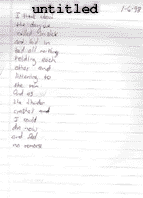 untitled
1-6-98
I think about
the days we
called in sick
and laid in
bed all
holding each
other and
listening to
the rain
and as
the thunder
crashed and
I could
die now
and feel
no remorse